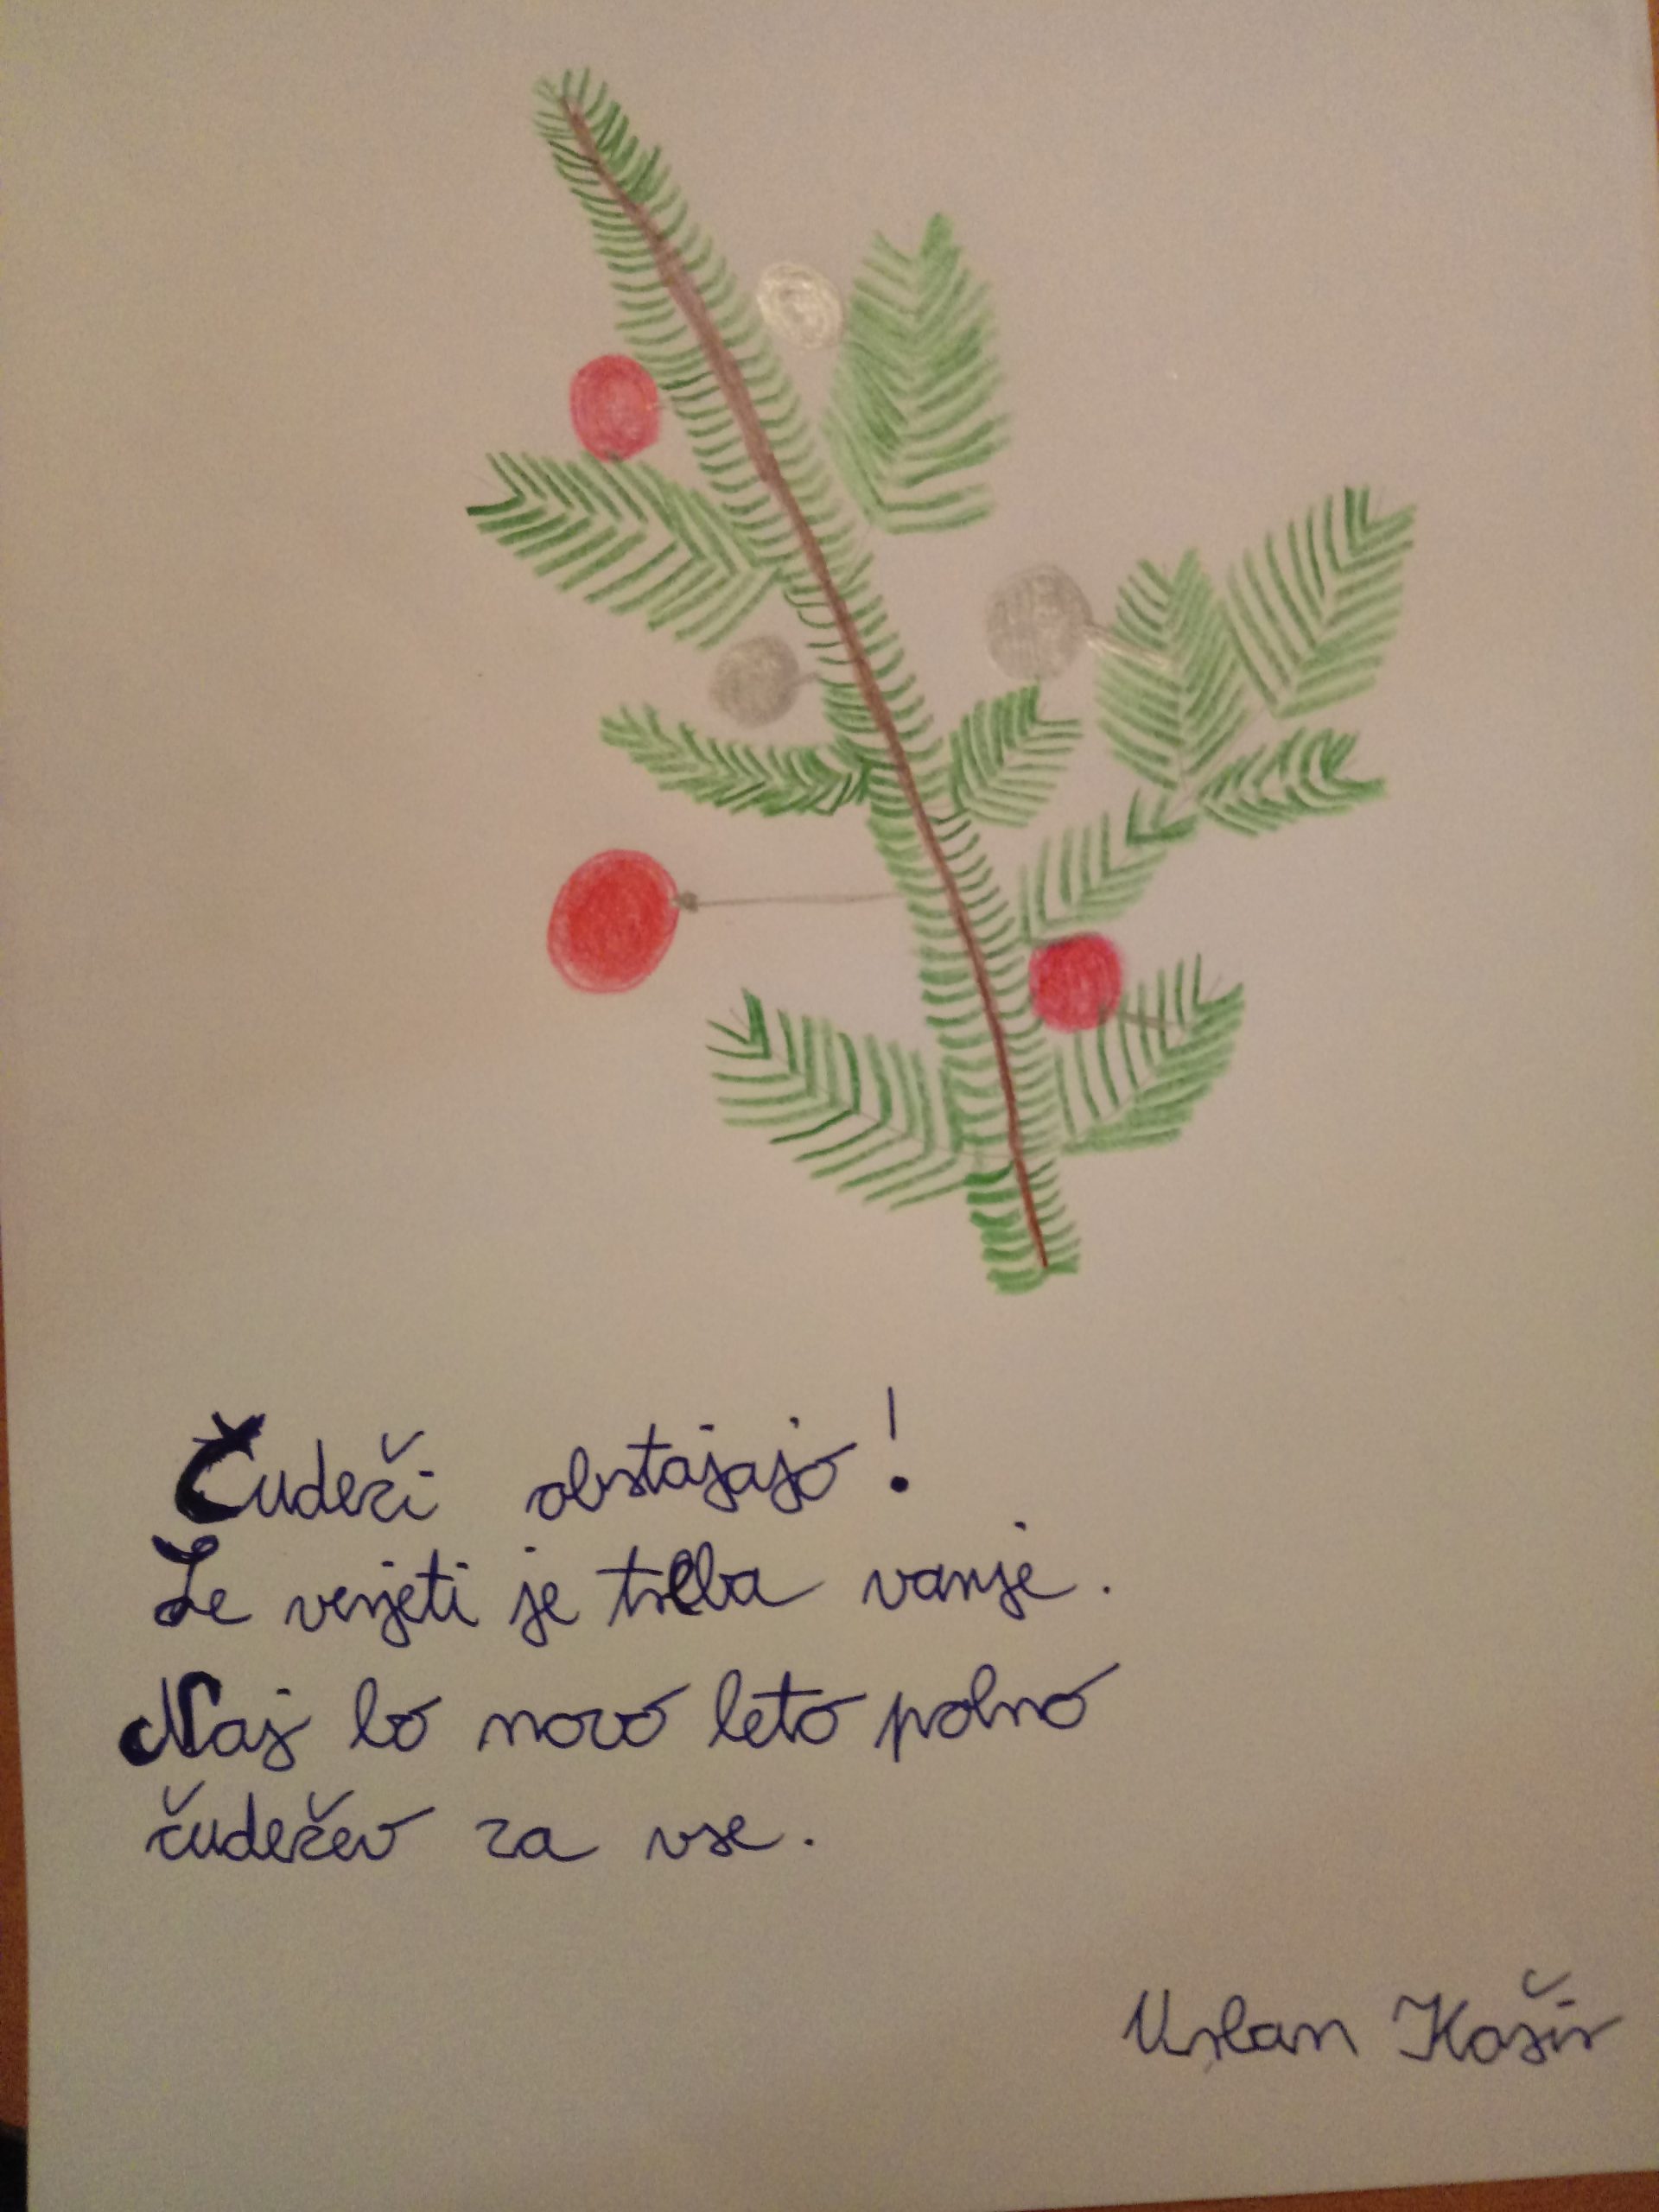 Čudeži obstajajo!
Le verjeti je treba vanje.
Naj bo novo leto polno
čudežev za vse.
Urban Košir